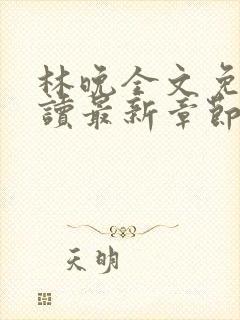 林晚全文免
讀最新章節
天明